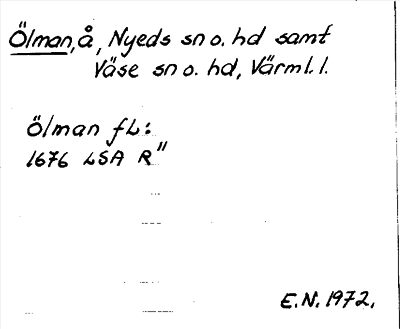 Ölman, å, Nyeds sn o. hd samt
Väse sn o. hd, Värml. l.
Ölman fl:
1676 LSA R"
E.N. 1972.